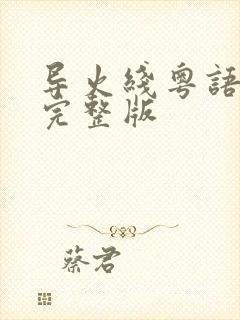 导火綫粤語
完整版
蔡君